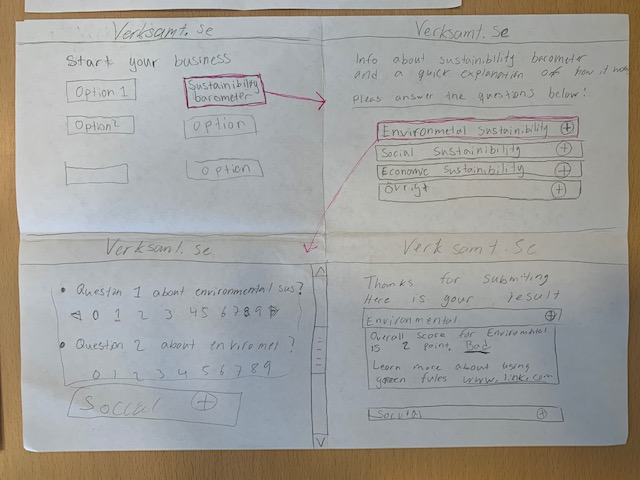 Verksamt.se
Start your business
Option 1
Sustainibility barometer
Option 2
Option
Option
Verksamt.se
Info about sustainibility barometer
and a quick explanation of how it
Pleas answer the questions below!
Environmetal Sustainibility +
Social Sustainibility +
Economic Sustainibility +
övrigt +
Verksamt.se
• Question 1 about environmental sus?
0 1 2 3 4 5 6 7 8 9
• Question 2 about
0 1 2 3 4 5 6 7 8 9
Social +
Verksamt.se
Thanks for submiting
Here is your result
Environmental +
Overall score for Environmental
is 2 point, Bad
Learn more about using
green
Social +